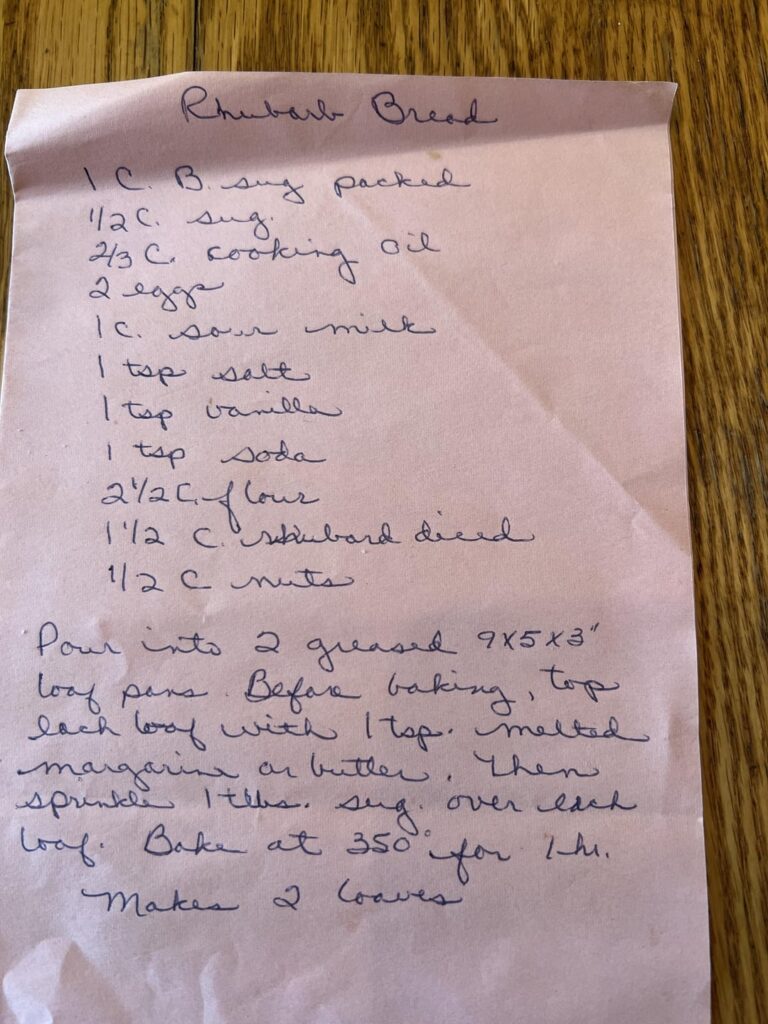 Rhubarb Bread
1 C. B. sug packed
1/2 C. sug.
2/3 C. cooking oil
2 eggs
1 C. sour milk
1 tsp salt
1 tsp vanilla
1 tsp soda
2 1/2 C. flour
1 1/2 C. rhubard diced
1/2 C nuts
Pour into 2 greased 9X5X3"
loaf pans. Before baking, top
each loaf with 1 tsp. melted
margarine or butter. Then
sprinkle 1 tlbs. sug. over each
loaf. Bake at 350° for 1 hr.
Makes 2 loaves